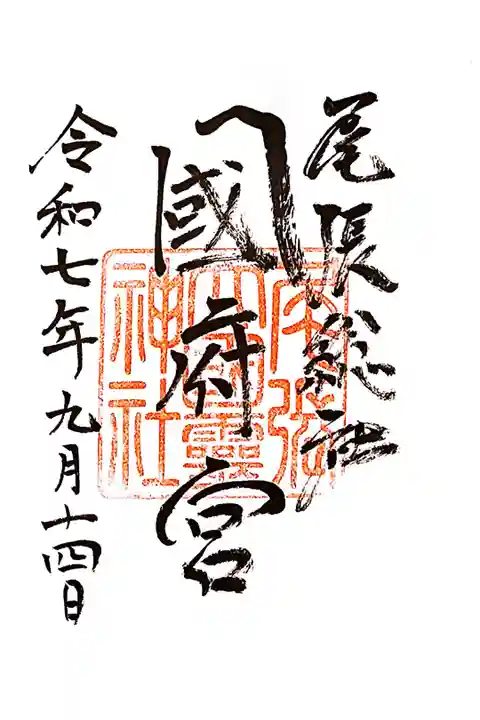 尾張総社
國府宮
令和七年九月十四日
尾張
大國霊
神社